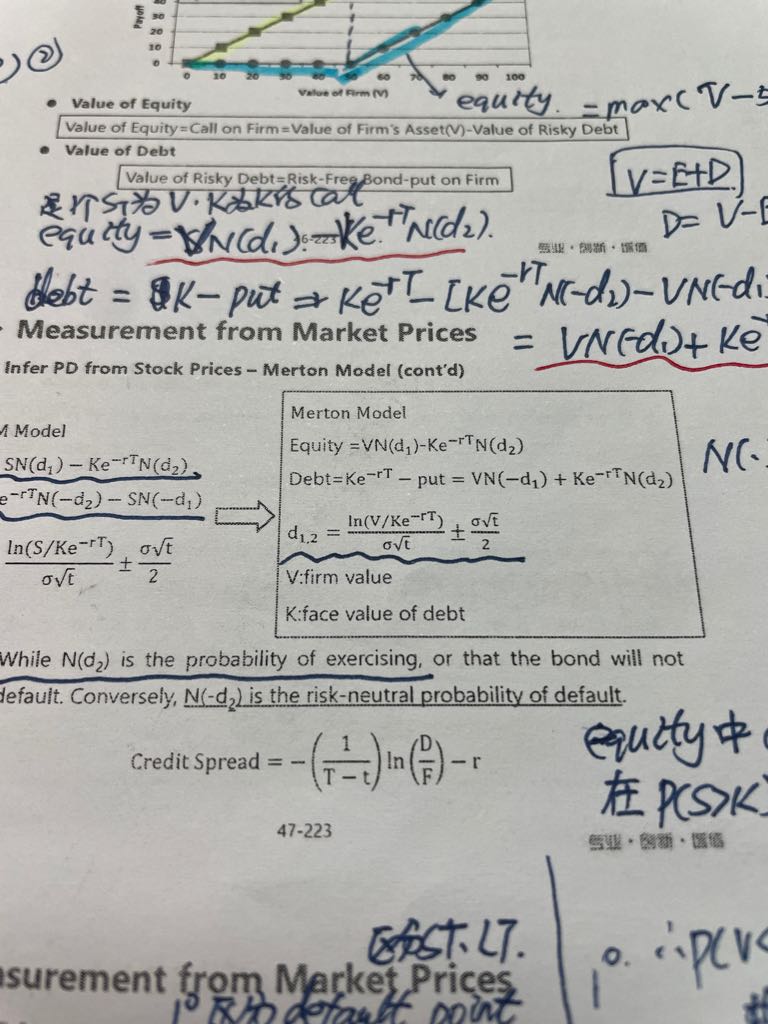 ②
Payoff
30
20
10
0
0 10 20 30 40 50 60 70 80 90 100
Value of Firm (V)
equity. = max( V-5
• Value of Equity
Value of Equity=Call on Firm=Value of Firm's Asset(V)-Value of Risky Debt
• Value of Debt
Value of Risky Debt=Risk-Free Bond-put on Firm
V=E+D
D= V-E
是个S为V.K为K的call
equity = VN(d₁) - Ke^-rT N(d₂).
6-223
专业·创新·增值
debt = K - put ⇒ Ke^-rT - [Ke^-rT N(-d₂) - VN(-d₁
Measurement from Market Prices
= VN(-d₁) + Ke
Infer PD from Stock Prices – Merton Model (cont'd)
M Model
SN(d₁) − Ke^−rT N(d₂)
e^−rT N(−d₂) − SN(−d₁)
ln(S/Ke^−rT)/σ√t ± σ√t/2
Merton Model
Equity =VN(d₁)-Ke^−rT N(d₂)
Debt=Ke^−rT − put = VN(−d₁) + Ke^−rT N(d₂)
d₁,₂ = ln(V/Ke^−rT)/σ√t ± σ√t/2
V:firm value
K:face value of debt
N(
While N(d₂) is the probability of exercising, or that the bond will not
default. Conversely, N(-d₂) is the risk-neutral probability of default.
Credit Spread = −(1/T − t) ln(D/F) − r
equity 中
在 P(S>K)
47-223
专业·创新·增值
ST、LT.
∴P(V<
asurement from Market Prices
1° default point